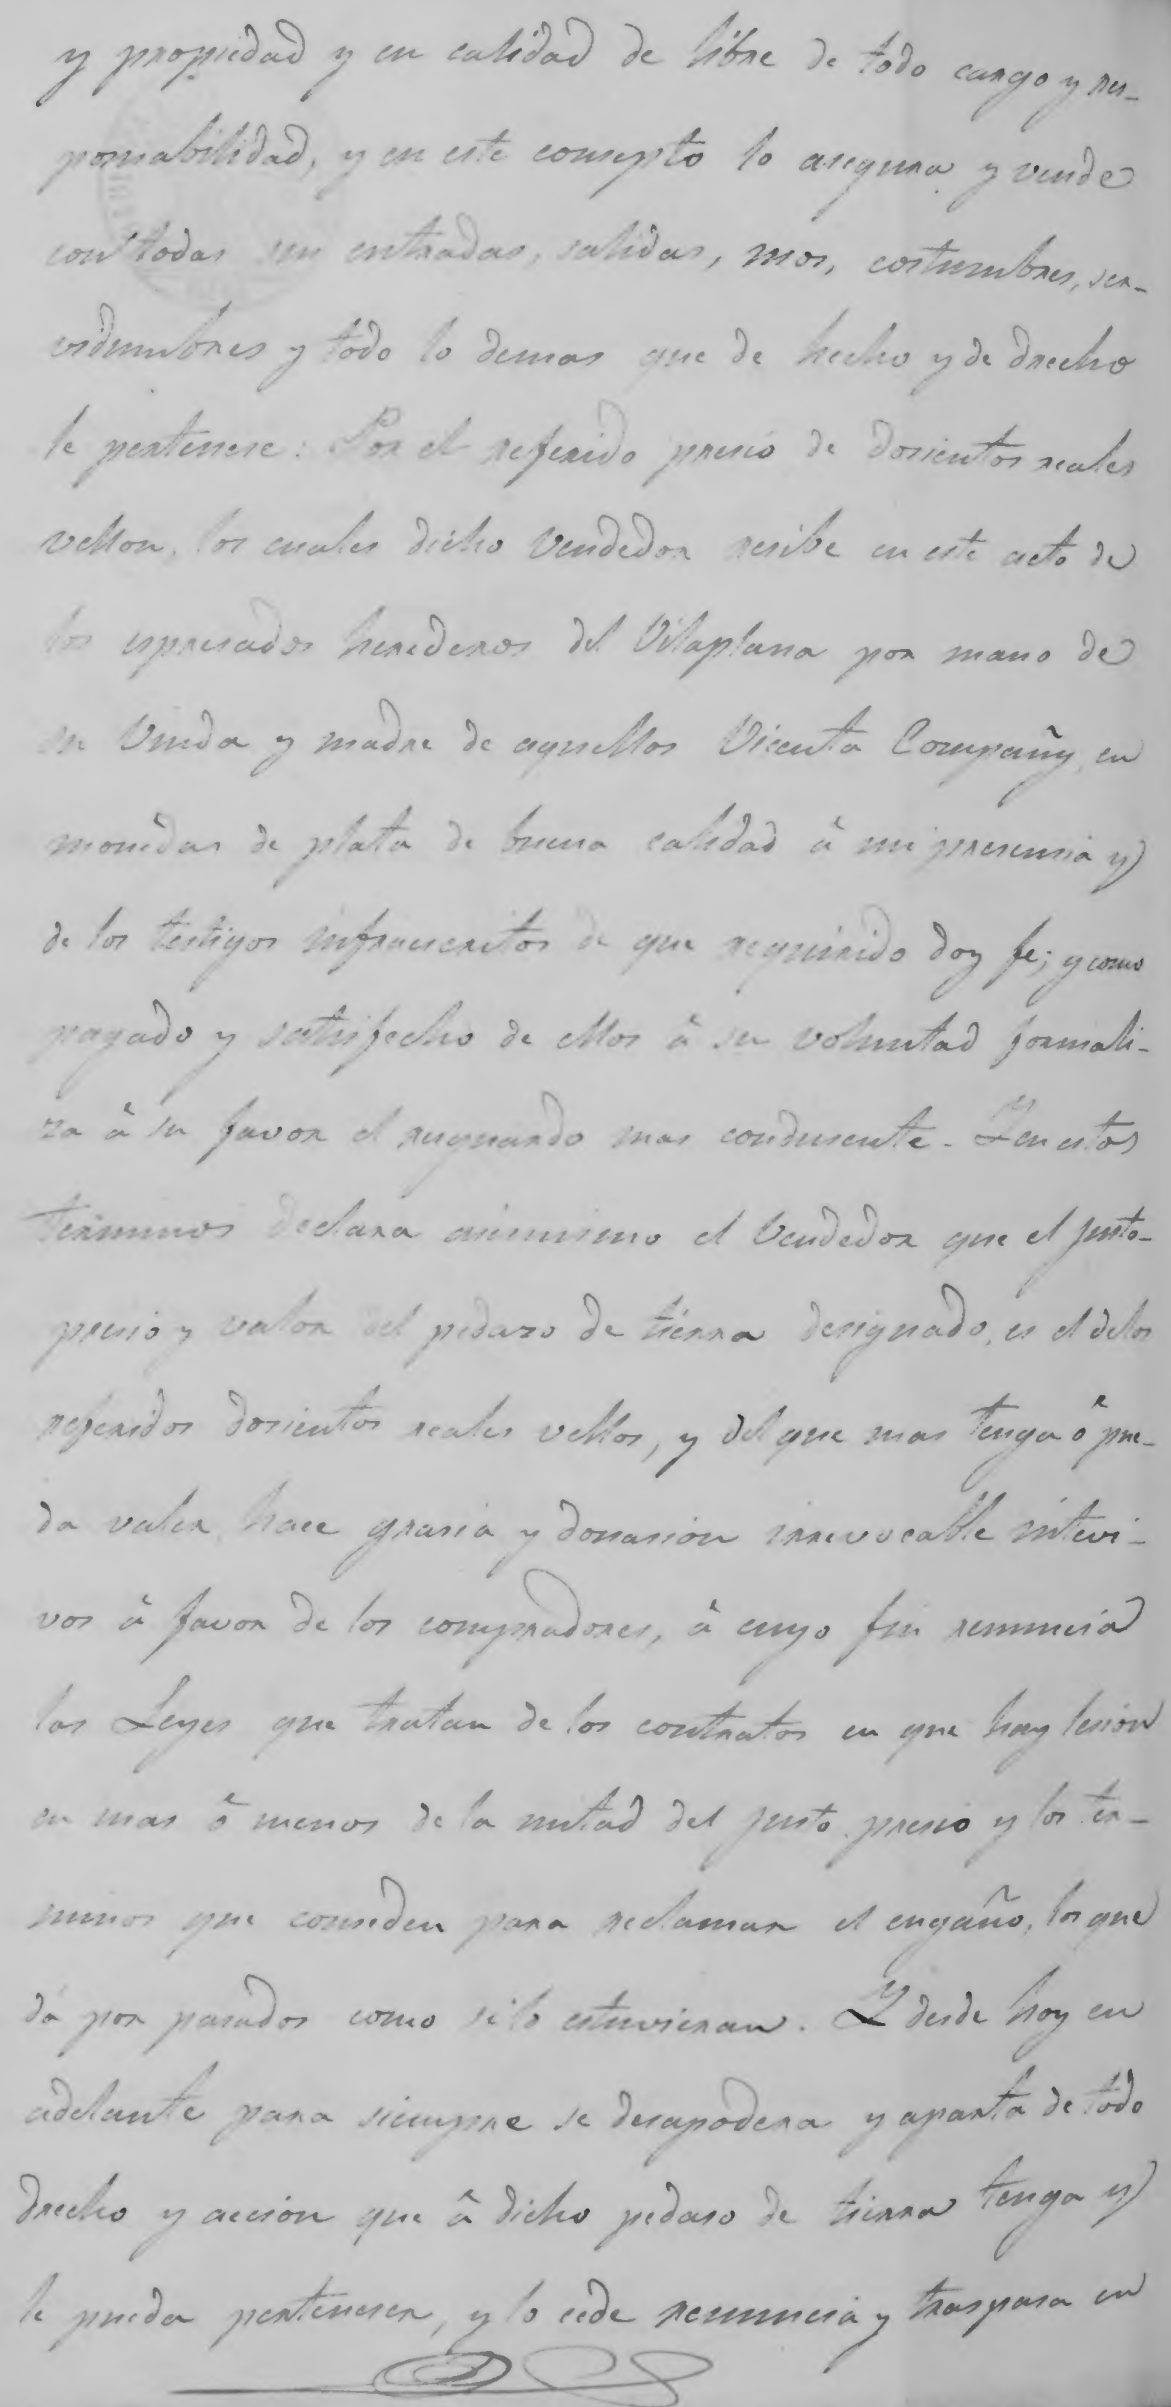 y propiedad y en calidad de libre de todo cargo y res-
ponsabilidad, y en este consepto lo asegura y vende
con todas sus entradas, salidas, usos, costumbres, ser-
vidumbres y todo lo demas que de hecho y de drecho
le pertenese: Por el referido presio de dosientos reales
vellon, los cuales dicho Vendedor resibe en este acto de
los espresados herederos del Vilaplana por mano de
su Viuda y madre de aquellos Vicenta Compañy, en
monedas de plata de buena calidad á mi presensia y
de los testigos infraescritos de que requirido doy fe; y como
pagado y satisfecho de ellos á su voluntad formali-
za á su favor el resguardo mas condusente. Y en estos
terminos declara asimismo el Vendedor que el justo
presio y valor del pedazo de tierra designado, es el de los
referidos dosientos reales vellos, y del que mas tenga ó pue-
da valer, hace grasia y donasion irrevocable intevi-
vos á favor de los compradores, á cuyo fin renuncia
las Leyes que tratan de los contratos en que hay lesion
en mas ó menos de la mitad del justo presio y los ter-
minos que conseden para reclamar el engaño, los que
dá por pasados como si lo estuvieran. Y desde hoy en
adelante para siempre se desapodera y aparta de todo
drecho y accion que á dicho pedaso de tierra tenga y
le pueda perteneser, y lo cede renuncia y traspasa en